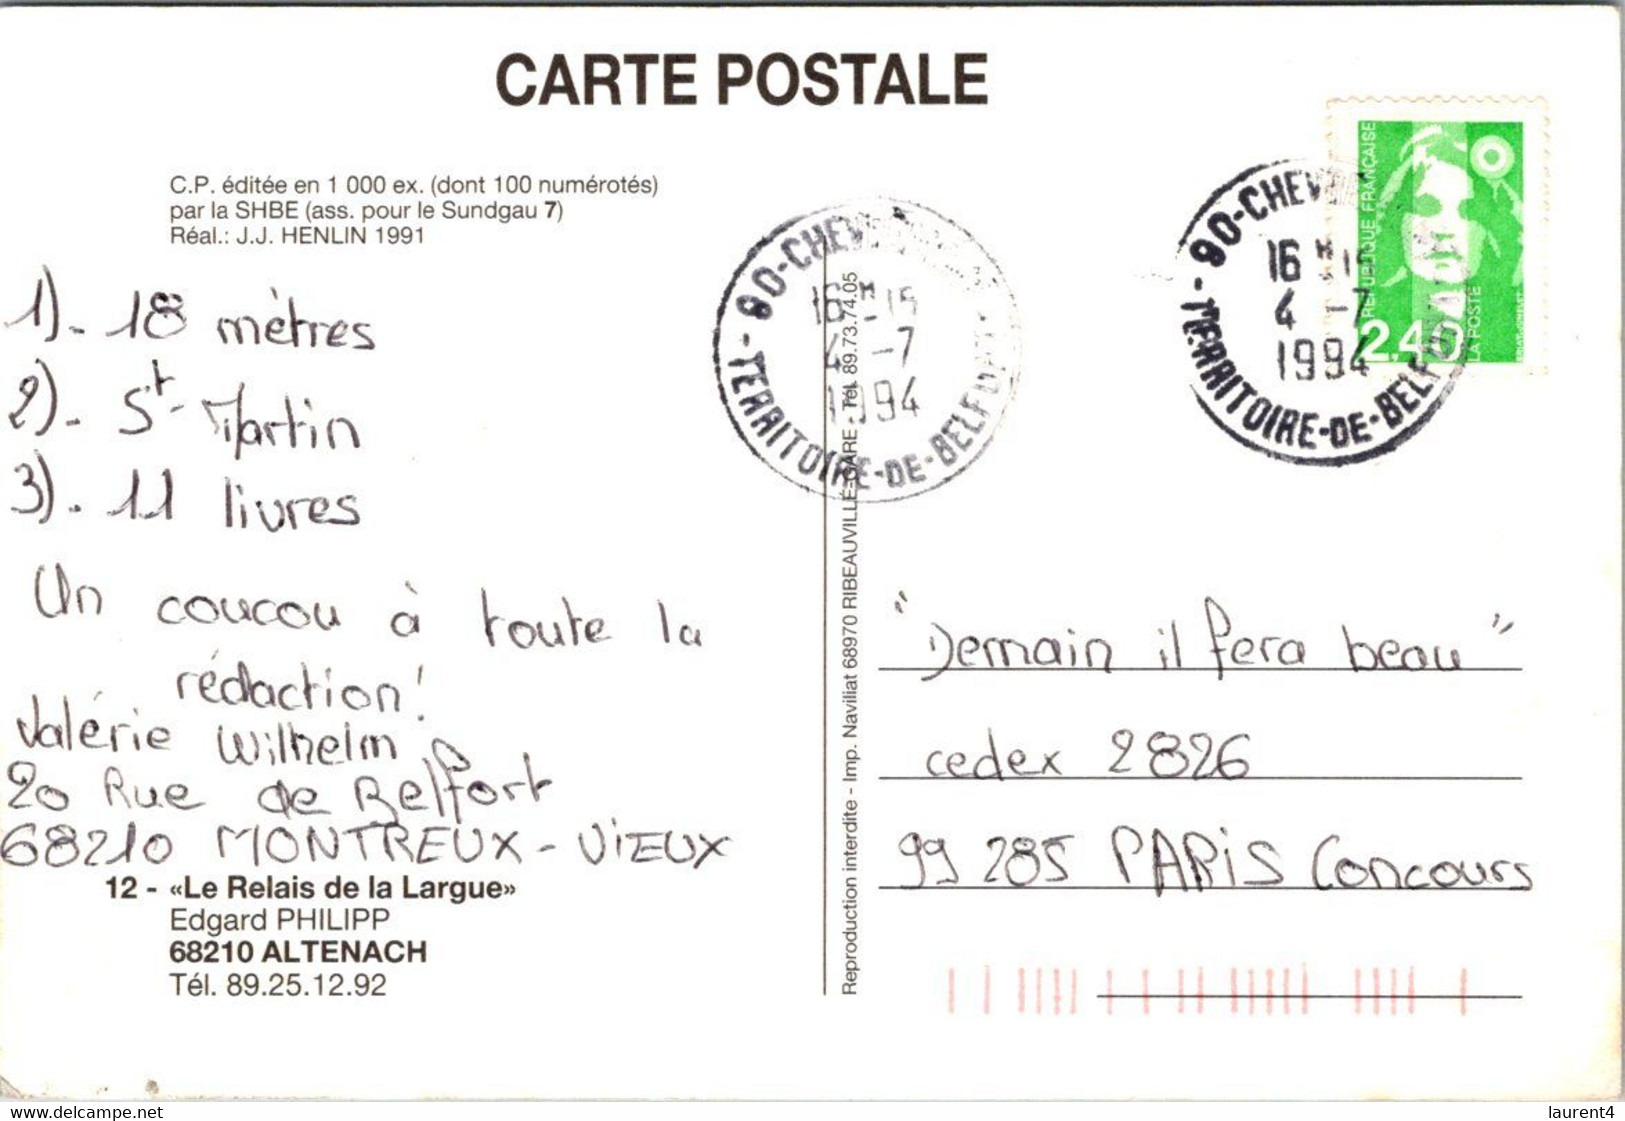 CARTE POSTALE
C.P. éditée en 1 000 ex. (dont 100 numérotés)
par la SHBE (ass. pour le Sundgau 7)
Réal.: J.J. HENLIN 1991
1)- 18 mètres
2)- St-Martin
3)- 11 livres
Un coucou à toute la
rédaction!
Valérie Wilhelm
20 Rue de Belfort
68210 MONTREUX-VIEUX
12 - «Le Relais de la Largue»
Edgard PHILIPP
68210 ALTENACH
Tél. 89.25.12.92
Reproduction interdite - Imp. Naviliat 68970 RIBEAUVILLE-GARE - Tél. 89.73.74.05
90-CHEV
16 H 15
4 -7
1994
TERRITOIRE-DE-BELFORT
90-CHEV
16 H 15
4 -7
1994
TERRITOIRE-DE-BELFORT
REPUBLIQUE FRANÇAISE
2,40
LA POSTE
"Demain il fera beau"
cedex 2826
99 285 PARIS Concours
delcampe.net
laurent4